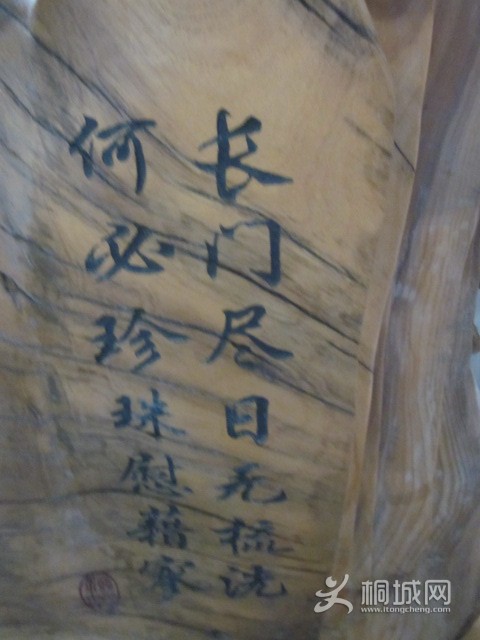 长门尽日无梳洗
何必珍珠慰藉寥
桐城网
www.itongcheng.com